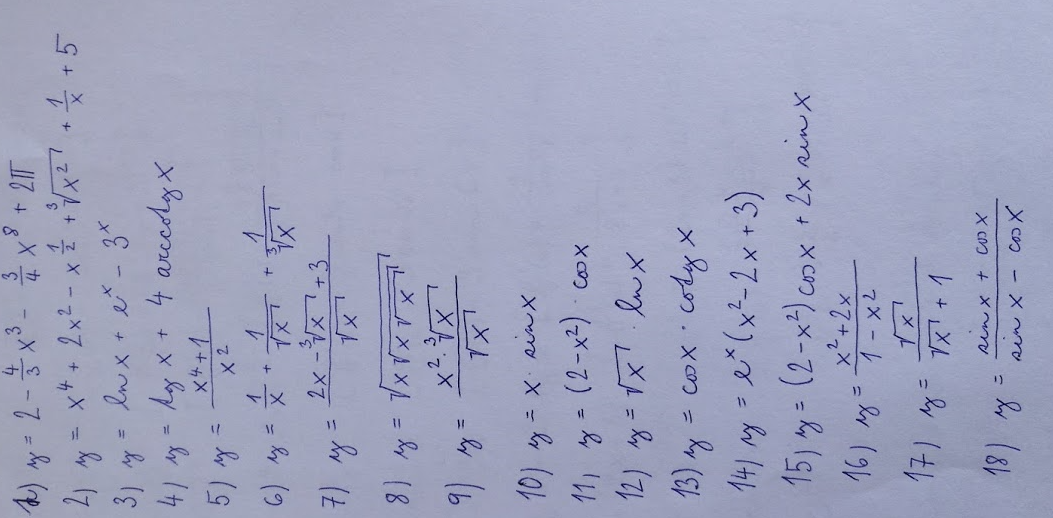 1) y = 2 - \frac{4}{3}x^3 - \frac{3}{4}x^8 + 2π
2) y = x^4 + 2x^2 - x^{\frac{1}{2}} + \sqrt[3]{x^2} + \frac{1}{x} + 5
3) y = ln x + e^x - 3^x
4) y = tg x + 4 arccotg x
5) y = \frac{x^4+1}{x^2}
6) y = \frac{1}{x} + \frac{1}{\sqrt{x}} + \frac{1}{\sqrt[3]{x}}
7) y = \frac{2x - \sqrt[3]{x} + 3}{\sqrt{x}}
8) y = \sqrt{x\sqrt{x\sqrt{x}}}
9) y = \frac{x^2 · \sqrt[3]{x}}{\sqrt{x}}
10) y = x · sin x
11) y = (2-x^2) · cos x
12) y = \sqrt{x} · ln x
13) y = cos x · cotg x
14) y = e^x(x^2 - 2x + 3)
15) y = (2-x^2) cos x + 2x sin x
16) y = \frac{x^2+2x}{1-x^2}
17) y = \frac{\sqrt{x}}{\sqrt{x}+1}
18) y = \frac{sin x + cos x}{sin x - cos x}